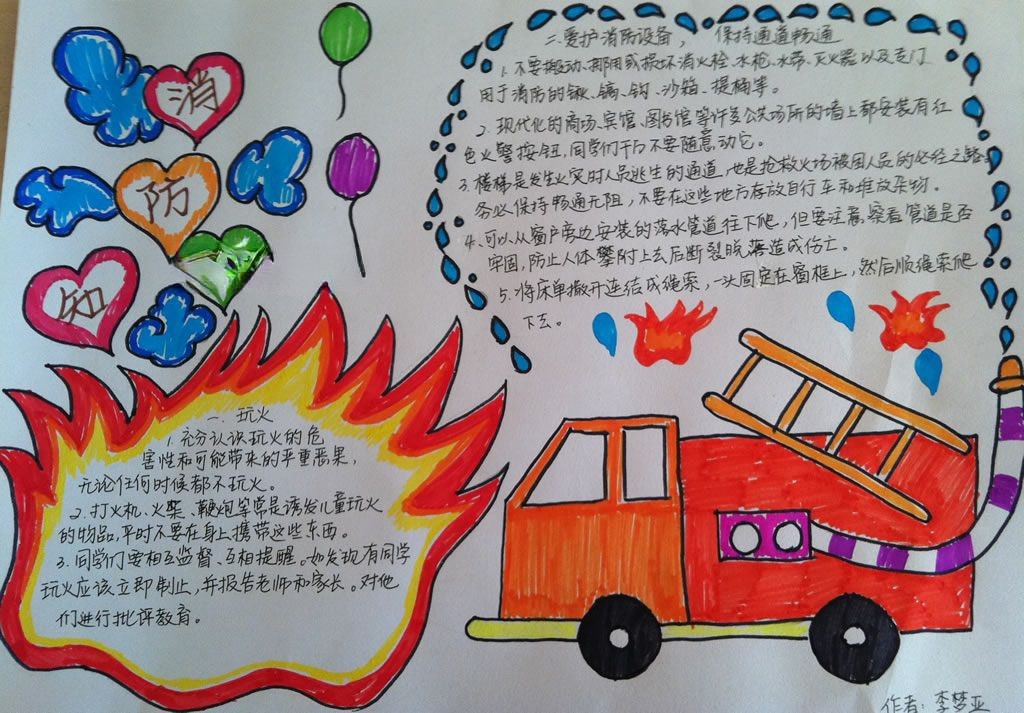 消
防
知
一、玩火
1. 充分认识玩火的危
害性和可能带来的严重恶果,
无论任何时候都不玩火。
2. 打火机、火柴、鞭炮等常是诱发儿童玩火
的物品,平时不要在身上携带这些东西。
3. 同学们要相互监督、互相提醒。如发现有同学
玩火应该立即制止,并报告老师和家长。对他
们进行批评教育。
二.爱护消防设备, 保持通道畅通
1. 不要搬动、挪用或损坏消火栓、水枪、水带、灭火器以及专门
用于消防的锹、镐、钩、沙箱、提桶等。
2. 现代化的商场、宾馆、图书馆等许多公共场所的墙上都安装有红
色火警按钮,同学们千万不要随意动它。
3. 楼梯是发生火灾时人员逃生的通道,也是抢救火场被困人员的必经之路。
务必保持畅通无阻,不要在这些地方存放自行车和堆放杂物。
4. 可以从窗户旁边安装的落水管道往下爬,但要注意察看管道是否
牢固,防止人体攀附上去后断裂脱落造成伤亡。
5. 将床单撤开连结成绳索,一头固定在窗框上,然后顺绳索爬
下去。
作者:李梦亚